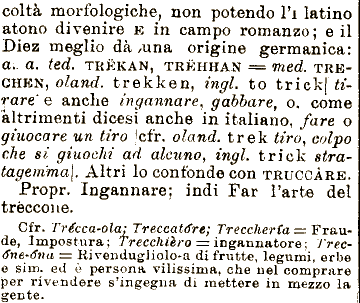 coltà morfologiche, non potendo l'ı latino
atono divenire E in campo romanzo; e il
Diez meglio dà una origine germanica:
a. a. ted. TRĔKAN, TRĔHHAN = med. TRE-
CHEN, oland. trekken, ingl. to trick[ ti-
rare e anche ingannare, gabbare, o. come
altrimenti dicesi anche in italiano, fare o
giuocare un tiro [cfr. oland. trek tiro, colpo
che si giuochi ad alcuno, ingl. trick stra-
tagemma]. Altri lo confonde con TRUCCÀRE.
Propr. Ingannare; indi Far l'arte del
treccone.
Cfr. Trécca-ola; Treccatóre; Treccherìa = Frau-
de, Impostura; Trecchièro = ingannatore; Trec-
óne-óna = Rivendugliolo-a di frutte, legumi, erbe
e sim. ed è persona vilissima, che nel comprare
per rivendere s'ingegna di mettere in mezzo la
gente.